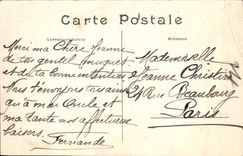 Carte Postale
CORRESPONDANCE
ADRESSE
Merci ma Chère Jeanne
de ton gentil muguet
et de ta bonne intention
Nous t'envoyons ainsi
qu'à mon Oncle et
ma tante nos affectueux
baisers.
Fernande
Mademoiselle
Jeanne Christin
24 Rue Beaubourg
Paris